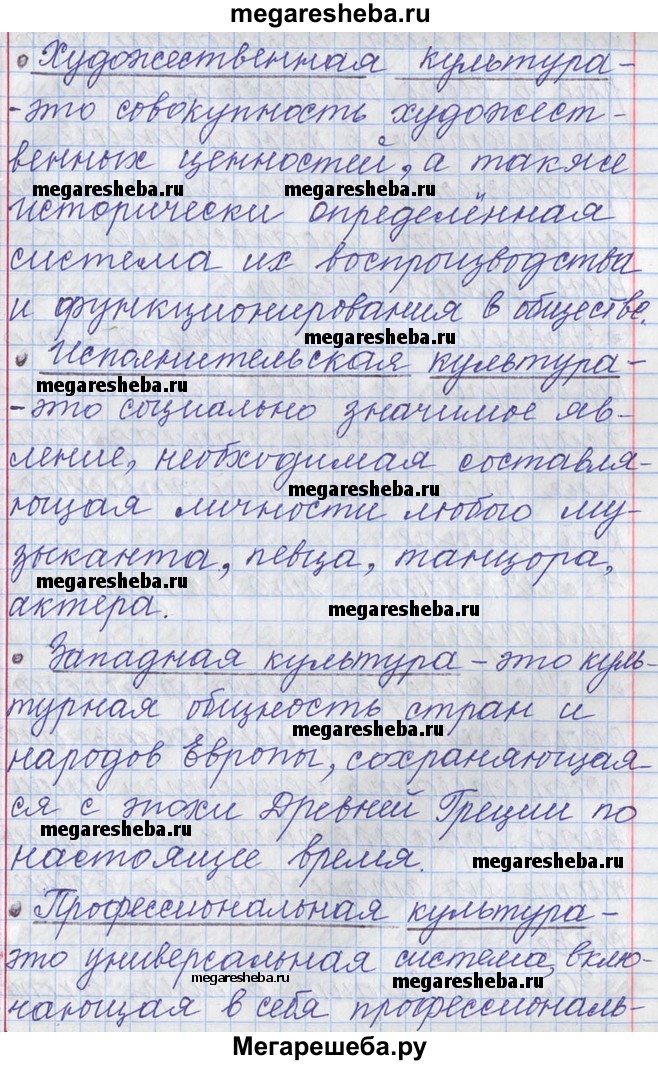 megaresheba.ru
• Художественная культура -
- это совокупность художест-
венных ценностей, а также
megaresheba.ru megaresheba.ru
исторически определённая
система их воспроизводства
и функционирования в обществе.
megaresheba.ru
• Исполнительская культура -
megaresheba.ru
- это социально значимое яв-
ление, необходимая составля-
megaresheba.ru
ющая личности любого му-
зыканта, певца, танцора,
megaresheba.ru
актера.
megaresheba.ru
• Западная культура - это куль-
турная общность стран и
megaresheba.ru
народов Европы, сохраняющая-
ся с эпохи Древней Греции по
megaresheba.ru
настоящее время.
megaresheba.ru
• Профессиональная культура -
это универсальная система, вклю-
megaresheba.ru megaresheba.ru
чающая в себя профессиональ-
Мегарешеба.ру